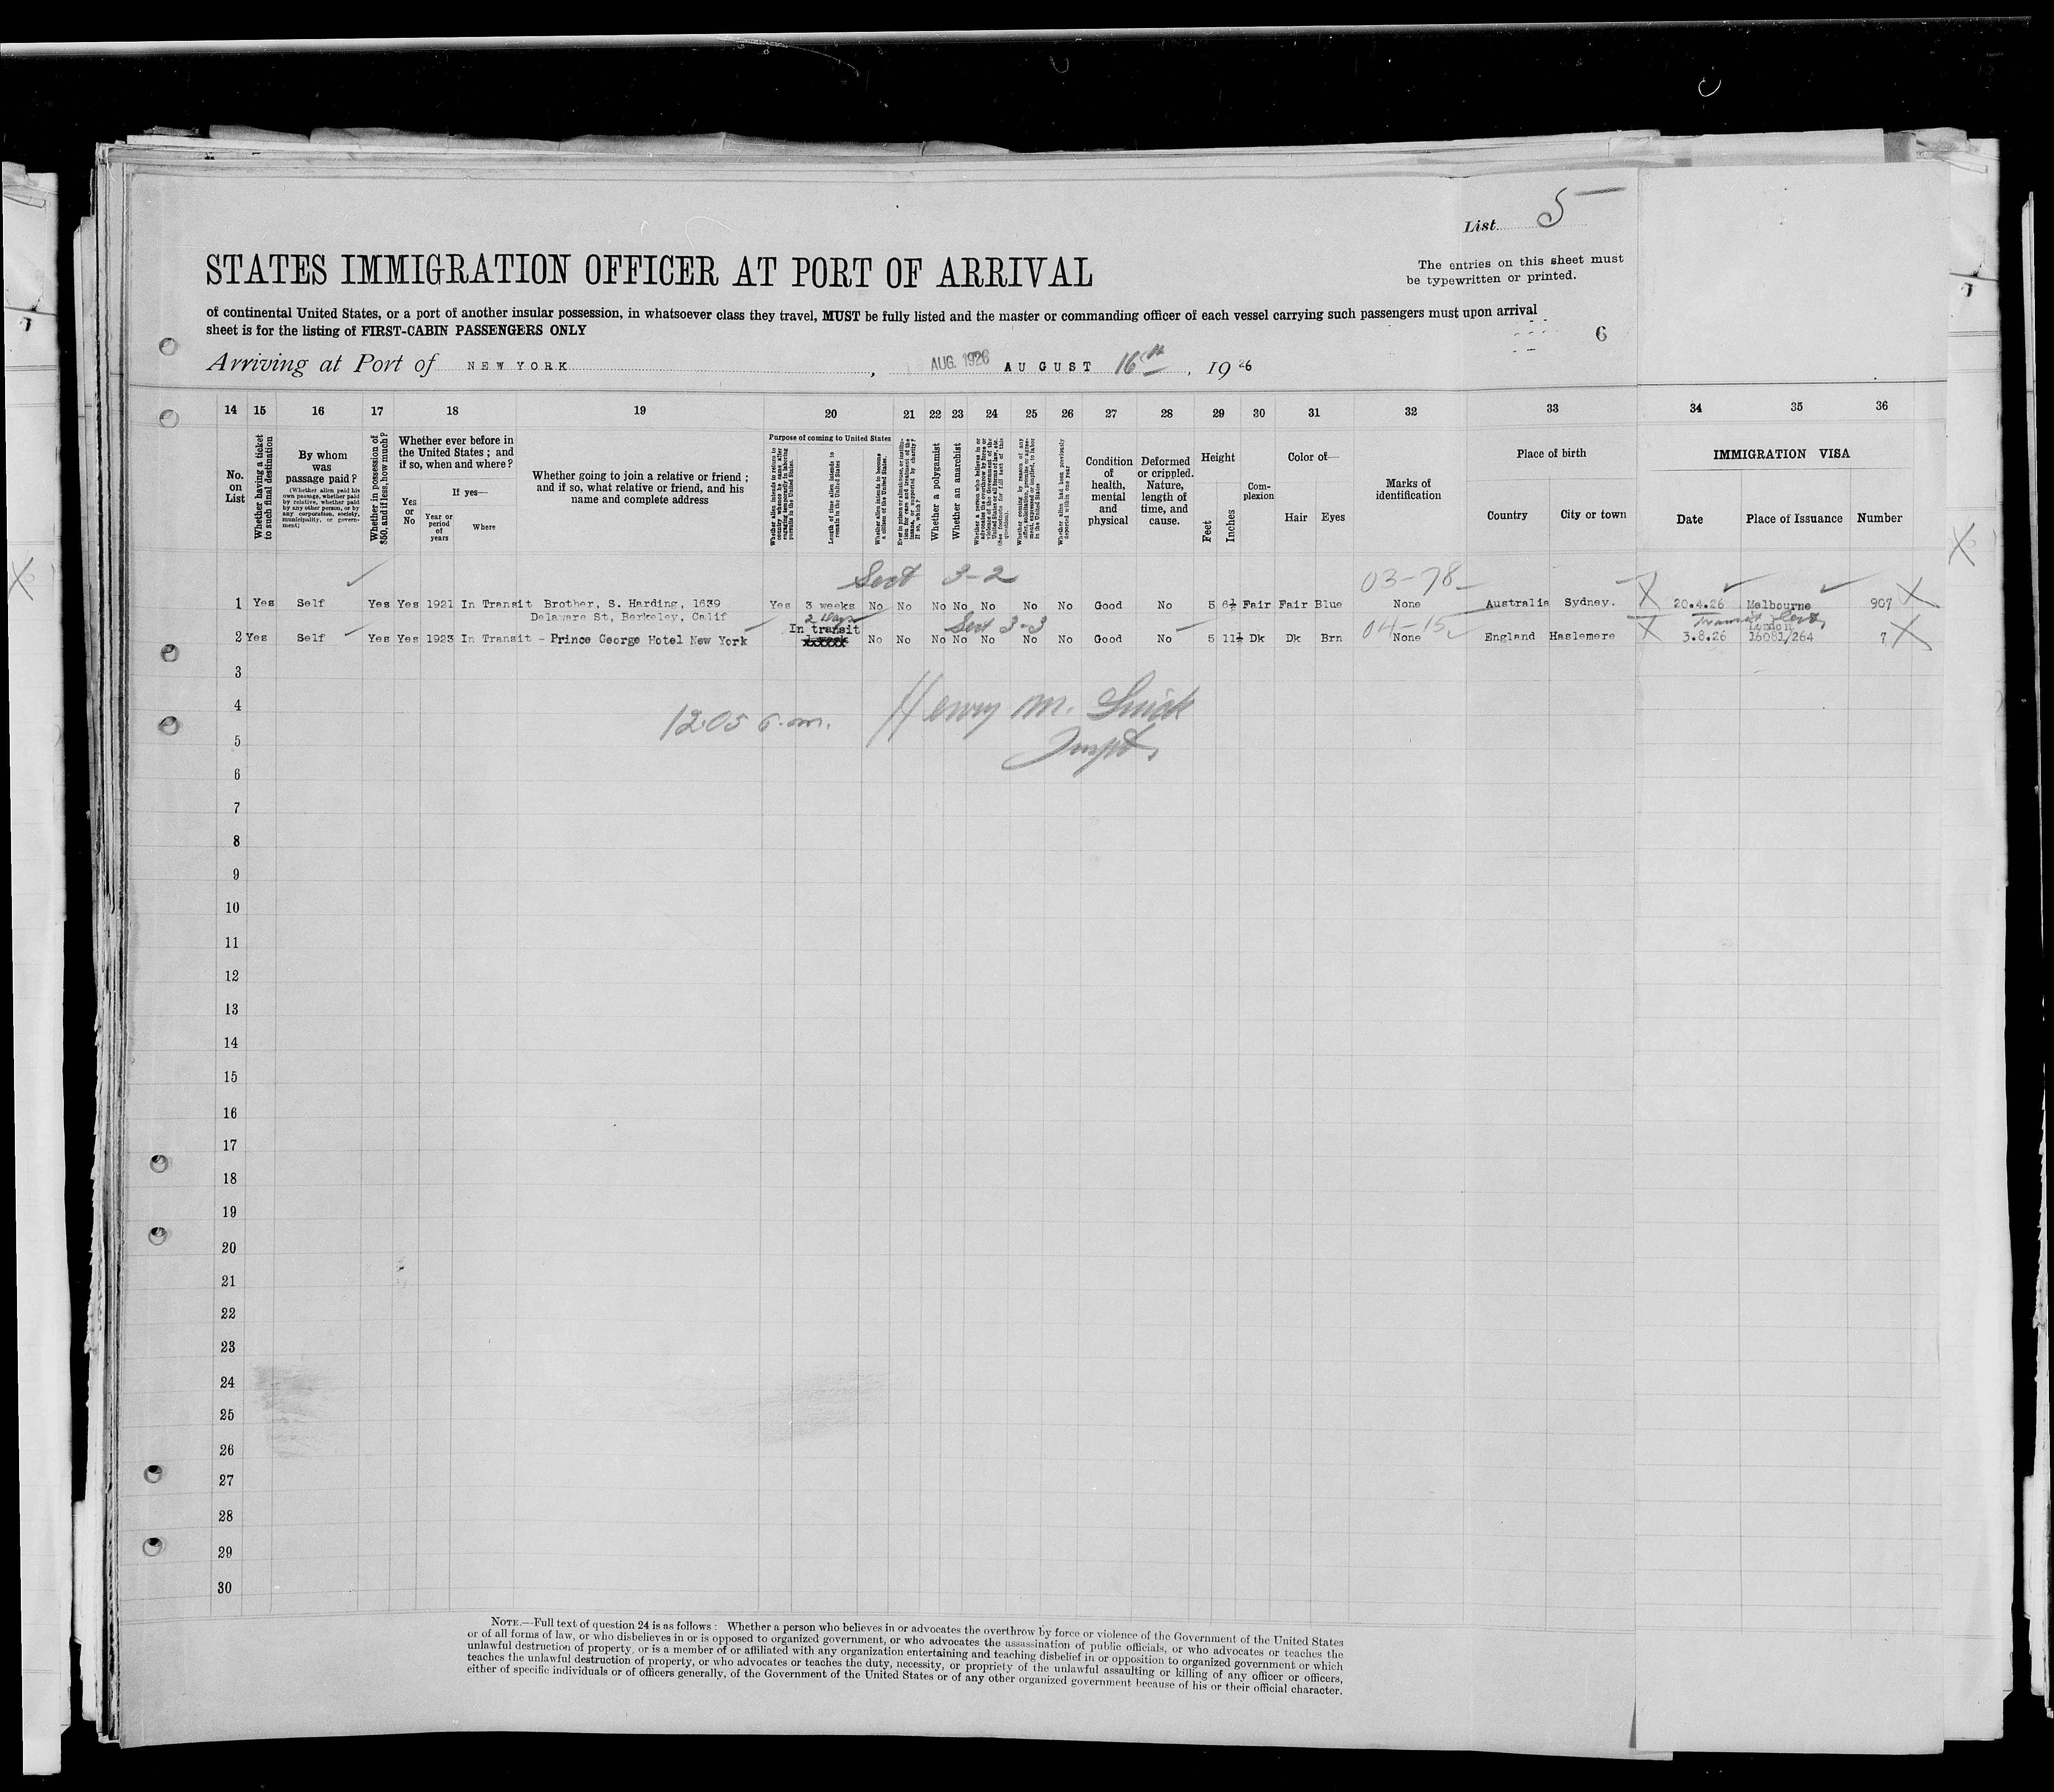 List 5
STATES IMMIGRATION OFFICER AT PORT OF ARRIVAL
The entries on this sheet must
be typewritten or printed.
of continental United States, or a port of another insular possession, in whatsoever class they travel, MUST be fully listed and the master or commanding officer of each vessel carrying such passengers must upon arrival
sheet is for the listing of FIRST-CABIN PASSENGERS ONLY
6
Arriving at Port of NEW YORK, AUG. 1926 AUGUST 16th, 1926
14 15 16 17 18 19 20 21 22 23 24 25 26 27 28 29 30 31 32 33 34 35 36
No. on List
Whether having a ticket to such final destination
By whom was passage paid?
(Whether alien paid his own passage, whether paid by relative, whether paid by any other person, or by any corporation, society, municipality, or government)
Whether in possession of $50, and if less, how much?
Whether ever before in the United States; and if so, when and where?
Yes or No
If yes—
Year or period of years
Where
Whether going to join a relative or friend; and if so, what relative or friend, and his name and complete address
Purpose of coming to United States
Whether alien intends to return to country whence he came after engaging temporarily in laboring pursuits in the United States.
Length of time alien intends to remain in the United States
Whether alien intends to become a citizen of the United States.
Ever in prison or almshouse, or institution for care and treatment of the insane, or supported by charity? If so, which?
Whether a polygamist
Whether an anarchist
Whether a person who believes in or advocates the overthrow by force or violence of the Government of the United States or all forms of law, etc. (See footnote for full text of this question)
Whether coming by reason of any offer, solicitation, promise or agreement, expressed or implied, to labor in the United States
Whether alien had been previously deported within one year
Condition of health, mental and physical
Deformed or crippled. Nature, length of time, and cause.
Height
Feet
Inches
Complexion
Color of—
Hair
Eyes
Marks of identification
Place of birth
Country
City or town
IMMIGRATION VISA
Date
Place of Issuance
Number
Sect 3-2 03-78
1 Yes Self Yes Yes 1921 In Transit Brother, S. Harding, 1639 Yes 3 weeks No No No No No No No Good No 5 6½ Fair Fair Blue None Australia Sydney. 20.4.26 Melbourne 907
Delaware St, Berkeley, Calif 2 Days Sect 3-3 04-15 Transit London
2 Yes Self Yes Yes 1923 In Transit - Prince George Hotel New York In transit 1 week No No No No No No No Good No 5 11½ Dk Dk Brn None England Haslemere 3.8.26 16081/264 7
3
4
12.05 Henry M.
5
Inspt.
6
7
8
9
10
11
12
13
14
15
16
17
18
19
20
21
22
23
24
25
26
27
28
29
30
NOTE.—Full text of question 24 is as follows: Whether a person who believes in or advocates the overthrow by force or violence of the Government of the United States
or of all forms of law, or who disbelieves in or is opposed to organized government, or who advocates the assassination of public officials, or who advocates or teaches the
unlawful destruction of property, or is a member of or affiliated with any organization entertaining and teaching disbelief in or opposition to organized government or which
teaches the unlawful destruction of property, or who advocates or teaches the duty, necessity, or propriety of the unlawful assaulting or killing of any officer or officers,
either of specific individuals or of officers generally, of the Government of the United States or of any other organized government because of his or their official character.